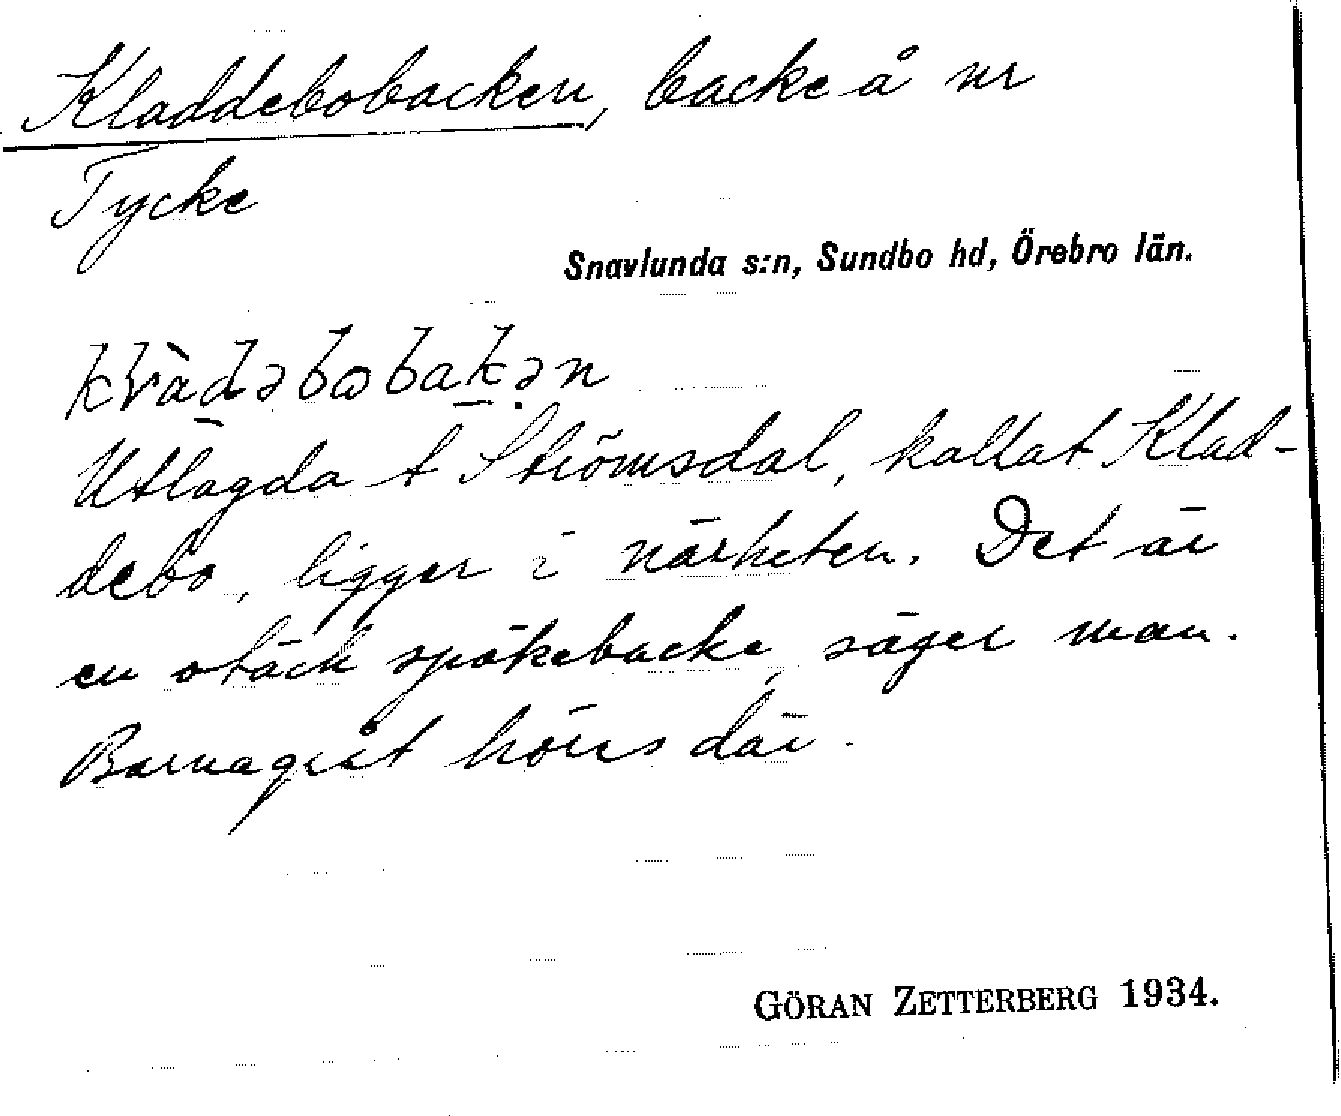 Kladdebobacken, backe å nr
Tycke
Snavlunda s:n, Sundbo hd, Örebro län.
Utlagda t Strömsdal, kallat Klad-
debo, ligger i närheten. Det är
en otäck spökebacke, säger man.
Barnagråt hörs där.
GÖRAN ZETTERBERG 1934.